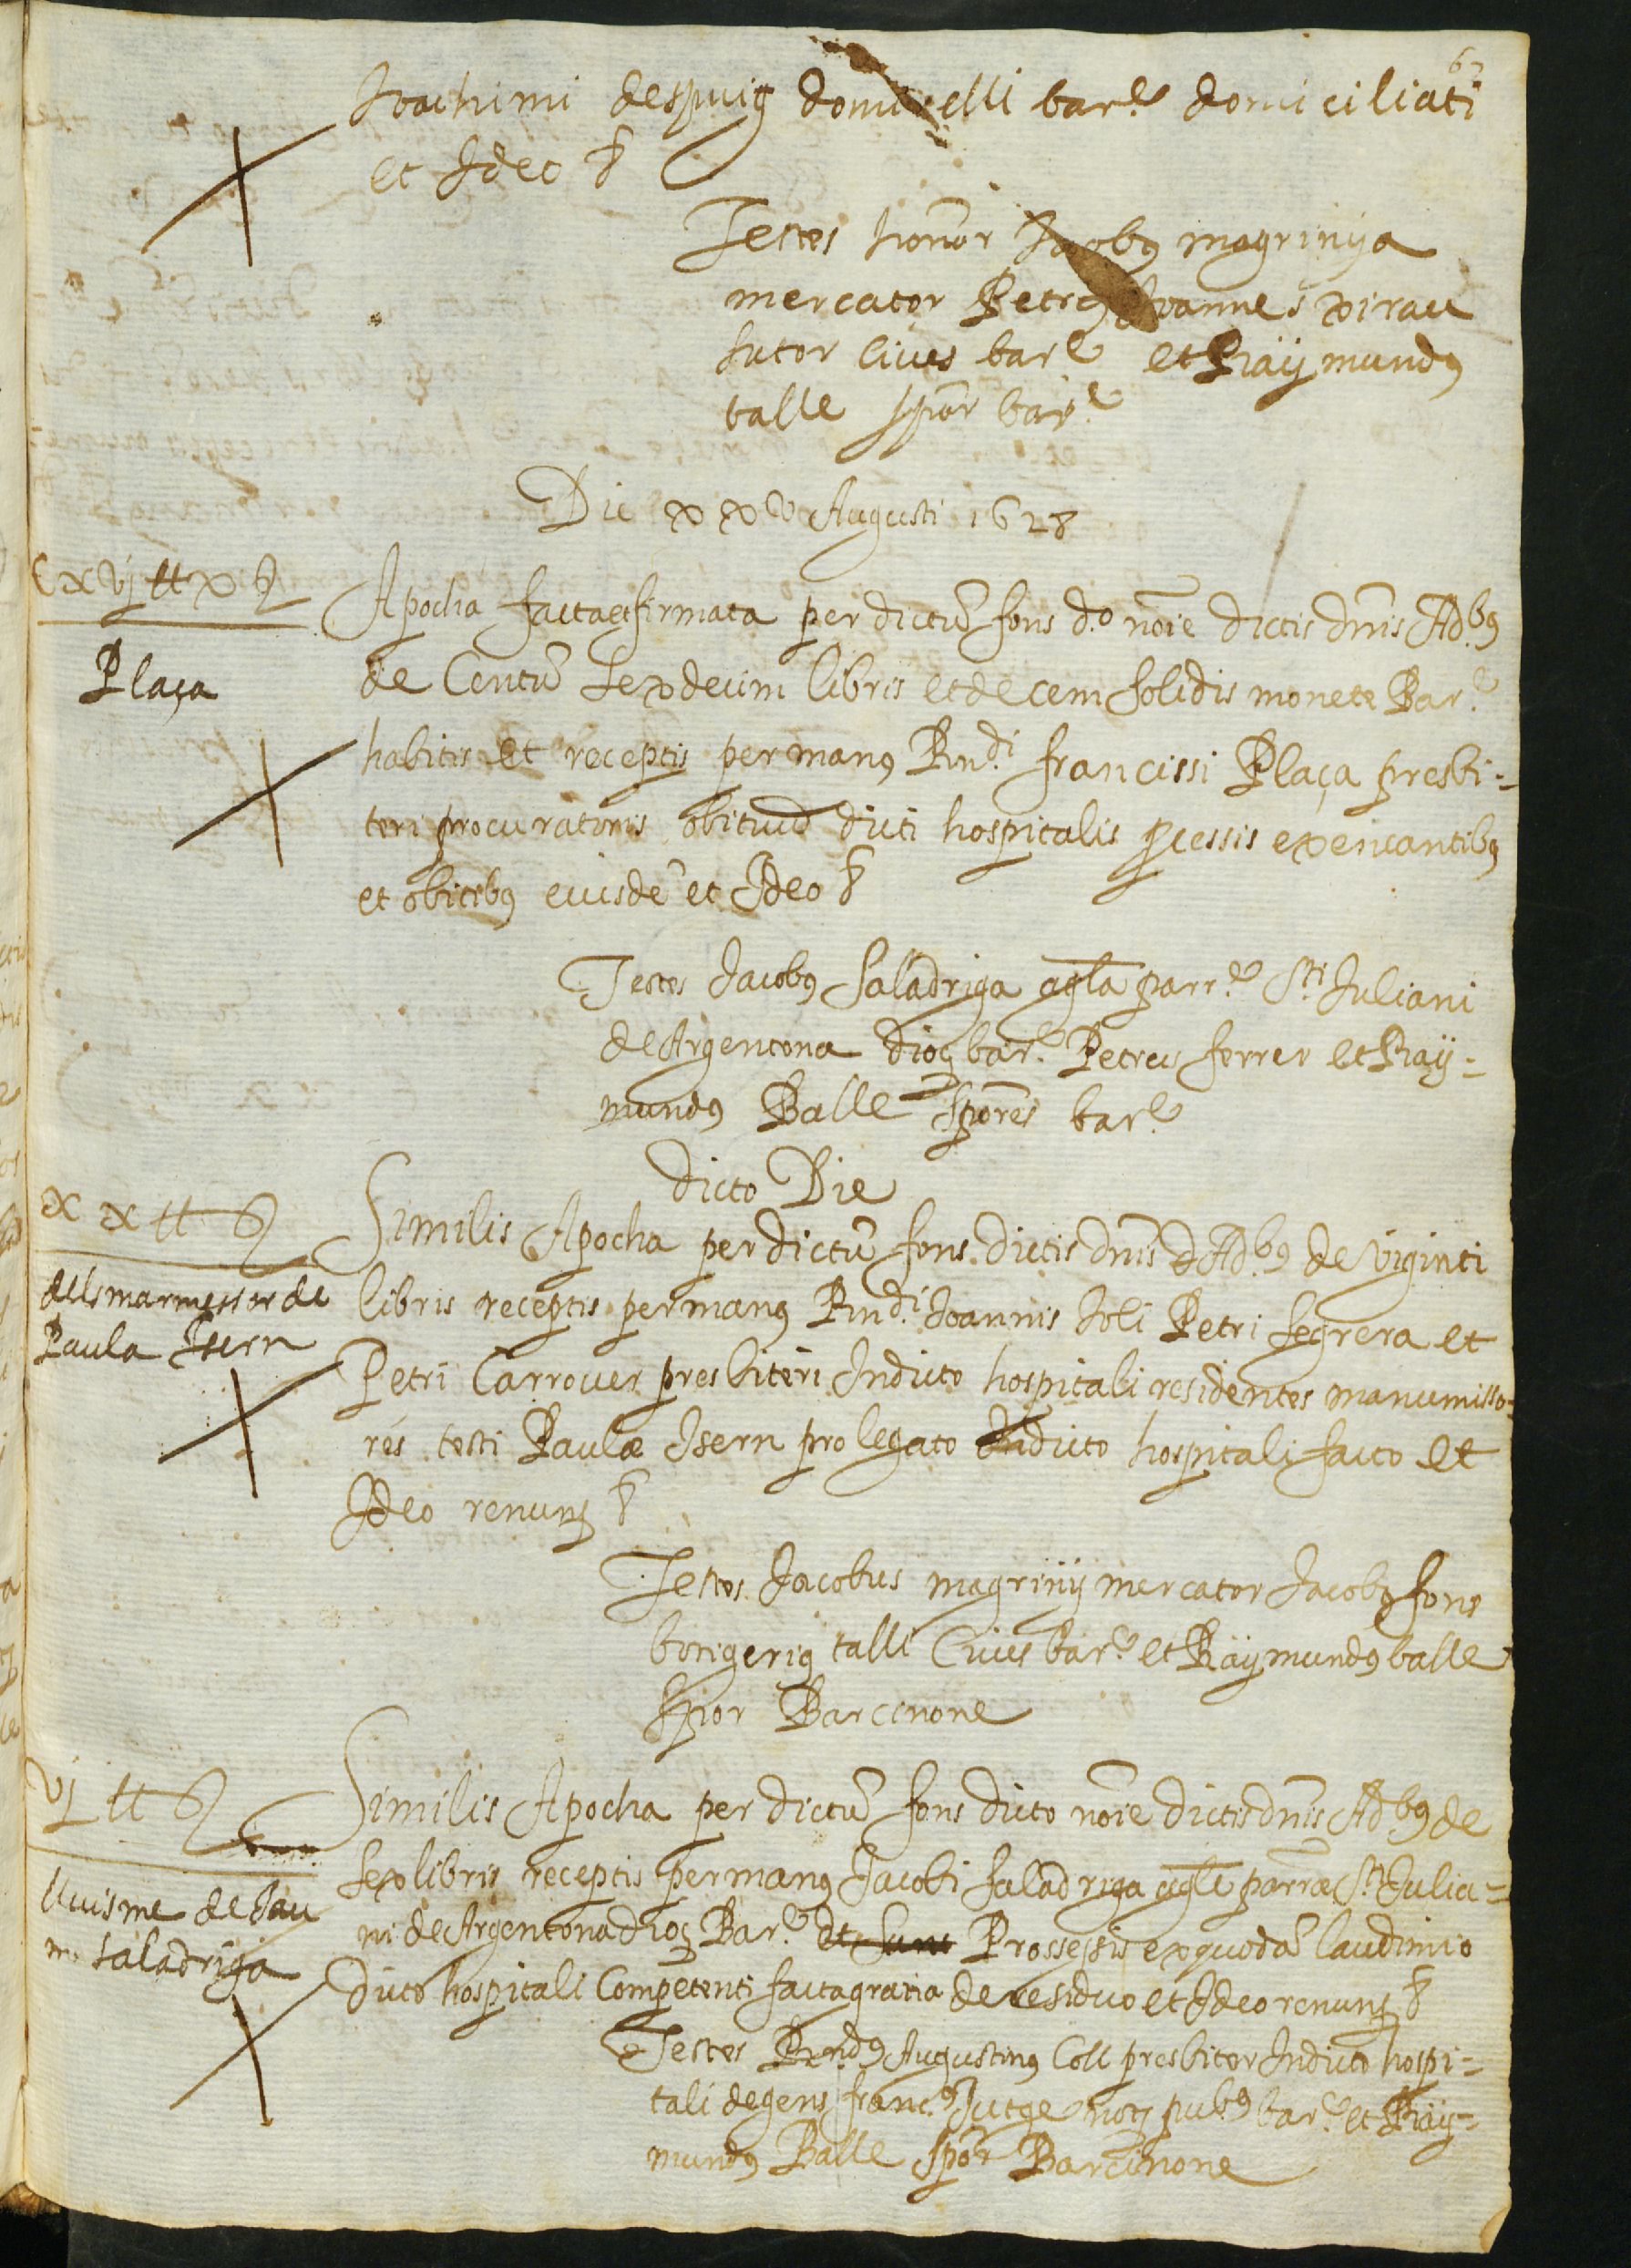 Ioachimi despuig domicelli bar.e domiciliati
et Ideo &
Testes honor Jacobus magrinya
mercator Petrus Joannes pirau
sutor Cives bar.e et Raymundus
balle spor bar.e
Die xxv Augusti 1628
Cxvj ll x s
Plaça
Apocha facta et firmata per dictu fons d.o noie dictis dnis Ad.bus
de Centu sexdecim libris et decem solidis monete Bar.e
habitis et receptis per manus Rnd.i francissi Plaça presbi=
teri procuratoris obituu dicti hospitalis pcessis ex
et obitibus eiusde et Ideo &
Testes Jacobus Saladriga agla parr.e S.ti Juliani
de Argentona dioc bar.e Petrus ferrer et Ray=
mundus Balle spores bar.e
dicto Die
xx ll s
dels marmessor de
Paula Isern
Similis Apocha per dictu fons dictis dnis d Ad.bus de viginti
libris receptis per manus Rnd.i Joannis Soli Petri Segrera et
Petri Carrover presbiteri In dicto hospitali residentes manumisso=
res testi Paulæ Isern pro legato In dicto hospitali facto et
Ideo renuns &
Testes Jacobus magriny mercator Jacobus fons
botigerius talli Cives bar.e et Raymundus balle
spior Barcinone
vj ll s
lluisme de Jau
me Saladriga
Similis Apocha per dictu fons dicto noie dictis dnis Ad.bus de
sex libris receptis per manus Jacobi saladriga agle parræ S.ti Julia=
ni de Argentona dioc Bar.e et sunt Prossessis ex quoda laudimio
dicto hospitali Competenti facta gratia de residuo et Ideo renuns &
Testes Rndus Augustinus Coll presbiter In dicto hospi=
tali degens franc.s Jutge not pub.us bar.e et Ray=
mundus Balle spor Barcinone